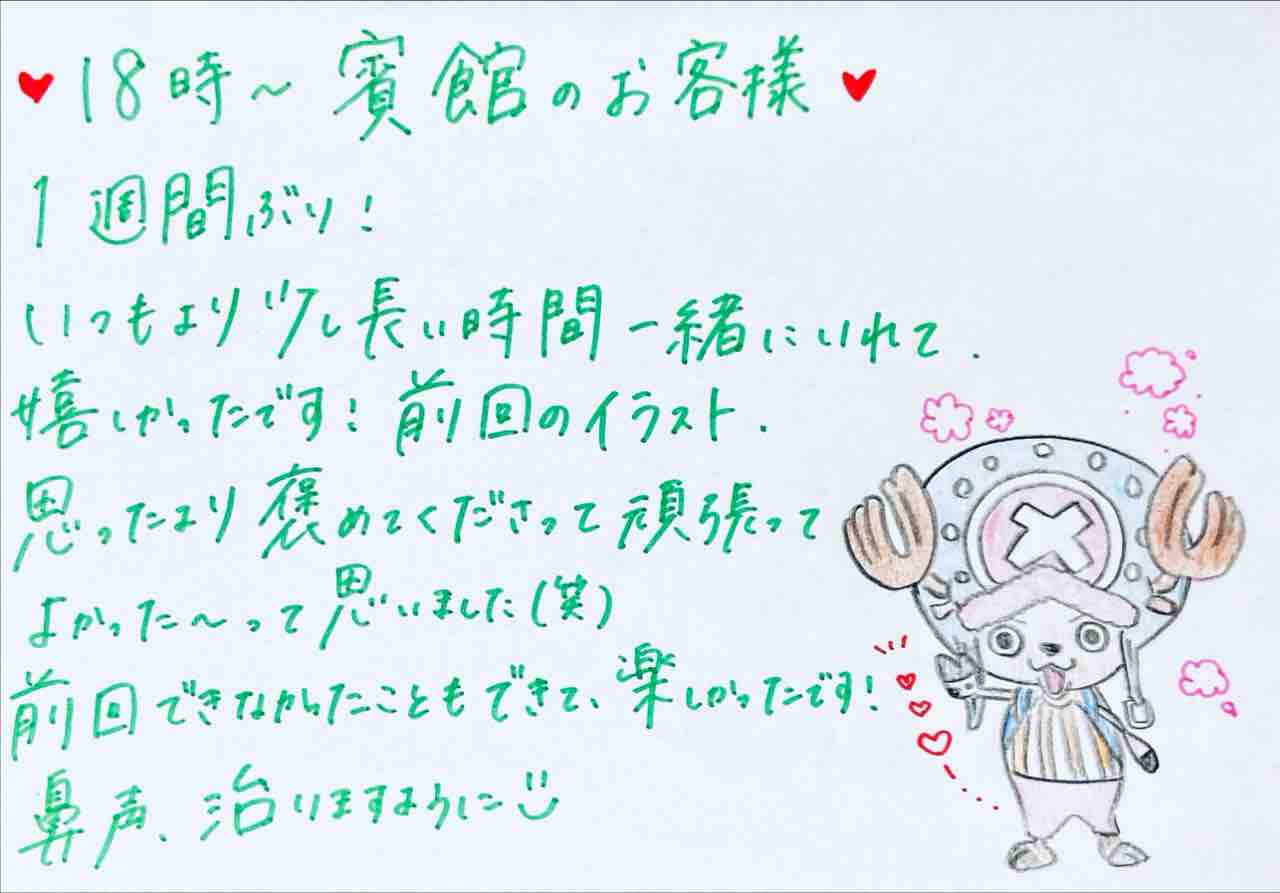 ♥18時～賓館のお客様♥
1週間ぶり！
いつもより少し長い時間一緒にいれて、
嬉しかったです！前回のイラスト、
思ったより褒めてくださって頑張って
よかった〜って思いました(笑)
前回できなかったこともできて、楽しかったです！
鼻声、治りますように